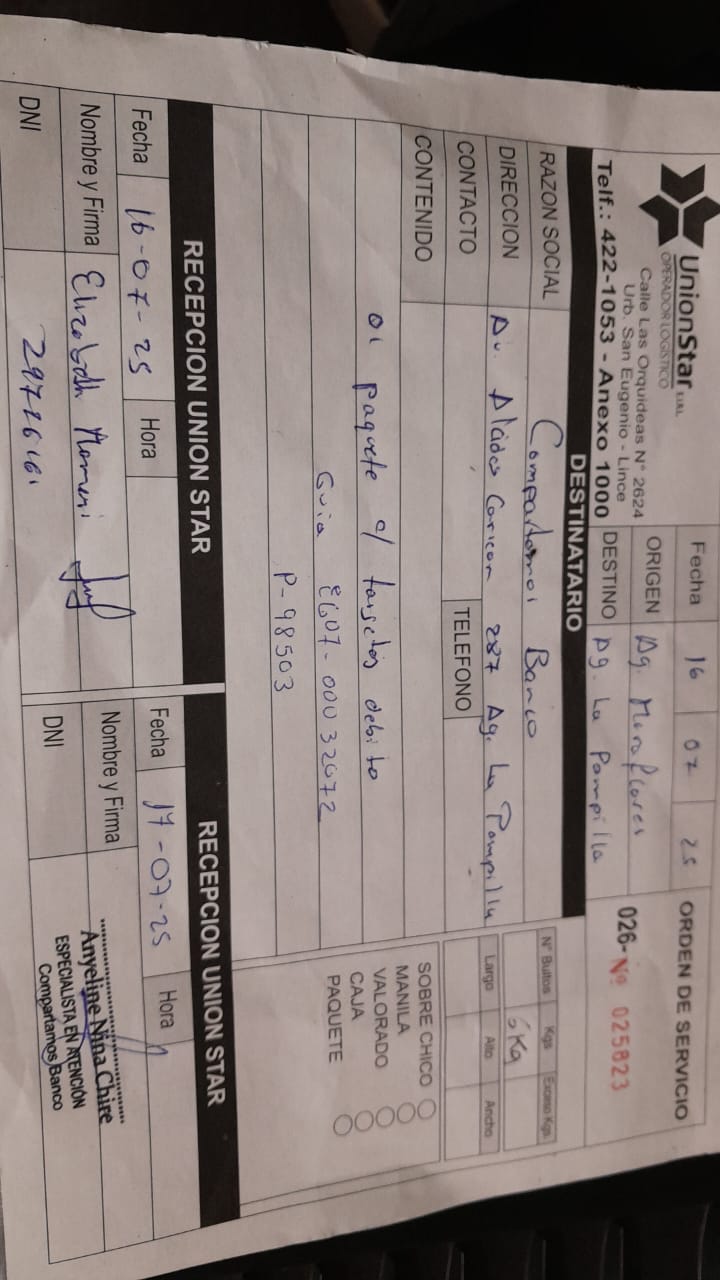 UnionStar E.I.R.L
OPERADOR LOGÍSTICO
Calle Las Orquideas N° 2624
Urb. San Eugenio - Lince
Telf.: 422-1053 - Anexo 1000
Fecha 16 07 25
ORIGEN Ag. Miraflores
DESTINO Ag. La Pampilla
ORDEN DE SERVICIO
026- Nº 025823
DESTINATARIO
RAZON SOCIAL Compartamos Banco
DIRECCION Av. Alcides Carrion 287 Ag. La Pampilla
CONTACTO
TELEFONO
CONTENIDO
01 paquete c/ tarjetas debito
Guia EG07-00032672
P-98503
N° Bultos Kgs Exceso Kgs.
6Kg
Largo Alto Ancho
SOBRE CHICO
MANILA
VALORADO
CAJA
PAQUETE
RECEPCION UNION STAR
Fecha 16-07-25 Hora
Nombre y Firma Elizabeth
DNI
RECEPCION UNION STAR
Fecha 17-07-25 Hora
Nombre y Firma
DNI
Anyeline Nina Chire
ESPECIALISTA EN ATENCIÓN
Compartamos Banco